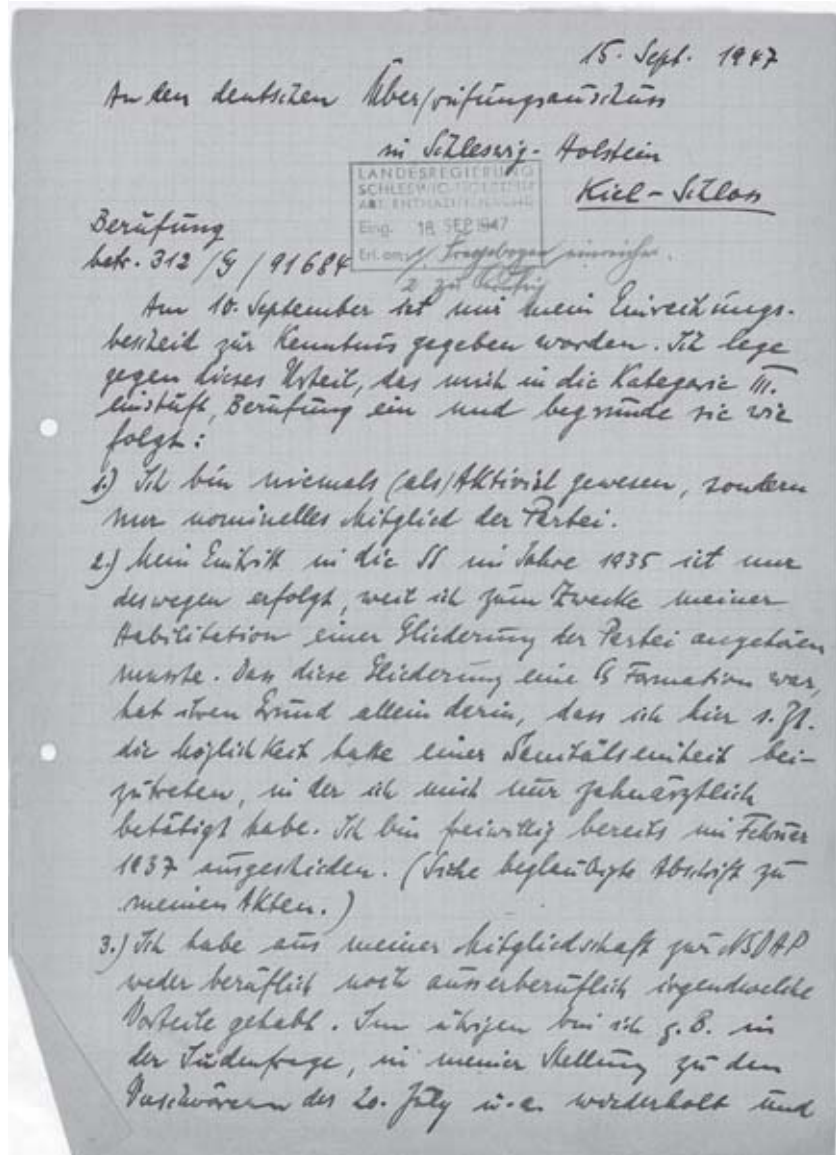 15. Sept. 1947
An den deutschen Überprüfungsausschuss
in Schleswig-Holstein
Kiel-Schloss
LANDESREGIERUNG
SCHLESWIG-HOLSTEIN
ABT. ENTNAZIFIZIERUNG
Eing. 18. SEP. 1947
Erl. am: 1/ Fragebogen einreichen.
2 zu
Berufung
betr. 312/G/91684
Am 10. September ist mir mein Einreihungs-
bescheid zur Kenntnis gegeben worden. Ich lege
gegen dieses Urteil, das mich in die Kategorie III.
einstuft, Berufung ein und begründe sie wie
folgt:
1.) Ich bin niemals (als) Aktivist gewesen, sondern
nur nominelles Mitglied der Partei.
2.) Mein Eintritt in die SS im Jahre 1935 ist nur
deswegen erfolgt, weil ich zum Zwecke meiner
Habilitation einer Gliederung der Partei angehören
musste. Dass diese Gliederung eine SS Formation war,
hat ihren Grund allein darin, dass ich hier s. Zt.
die Möglichkeit hatte einer Sanitätseinheit bei-
zutreten, in der ich mich nur zahnärztlich
betätigt habe. Ich bin freiwillig bereits im Februar
1937 ausgeschieden. (Siehe beglaubigte Abschrift zu
meinen Akten.)
3.) Ich habe aus meiner Mitgliedschaft zur NSDAP
weder beruflich noch ausserberuflich irgendwelche
Vorteile gehabt. Im übrigen bin ich z.B. in
der Judenfrage, in meiner Stellung zu den
Verschwörern des 20. July u.a. wiederholt und